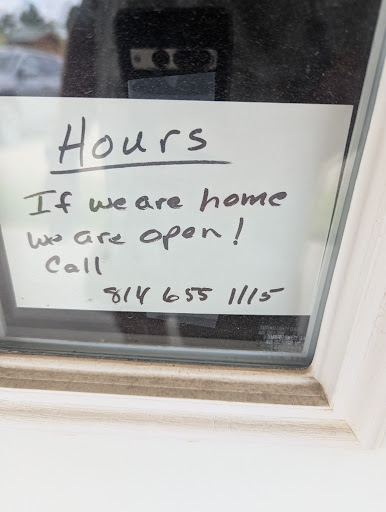 Hours
If we are home
we are open!
Call
814 655 1115